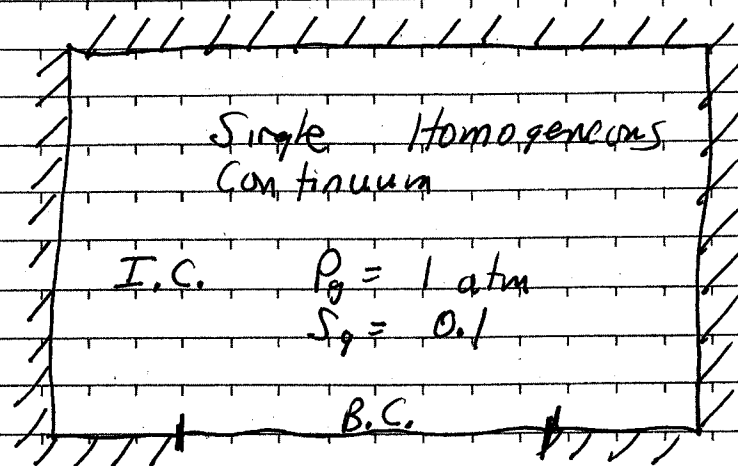 Single Homogeneous
Continuum
I.C. Pg = 1 atm
Sg = 0.1
B.C.